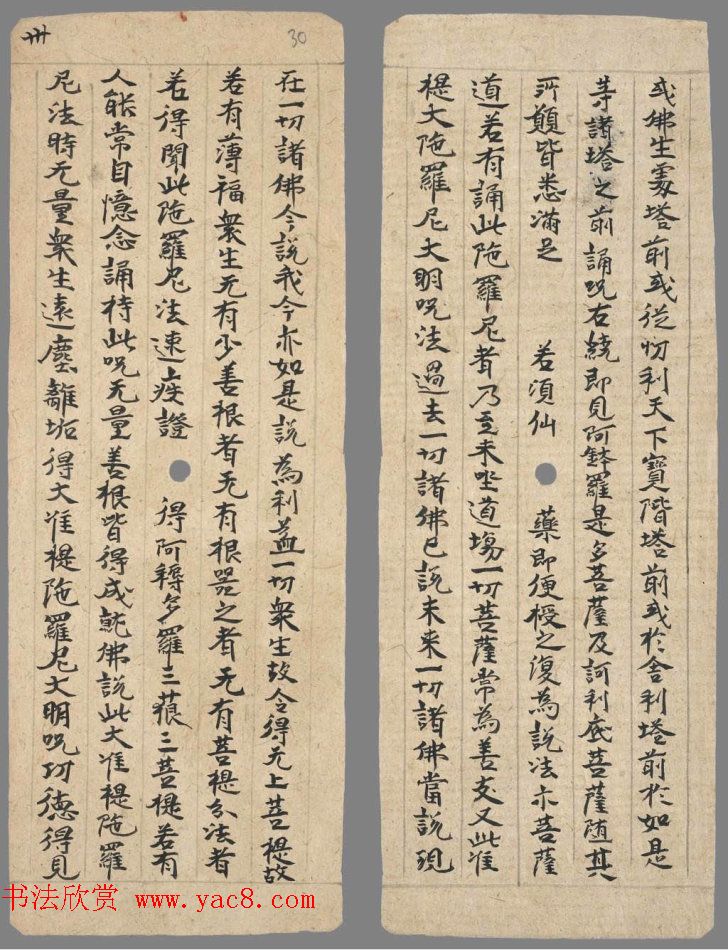 或佛生處塔前或從忉利天下寶階塔前或於舍利塔前於如是
等諸塔之前誦呪右繞即見阿鉢羅是多菩薩及訶利底菩薩随其
所願皆悉滿足 若須仙 藥即便授之復為說法示菩薩
道若有誦此陁羅尼者乃至未坐道場一切菩薩常為善友又此准
提大陁羅尼大明呪法過去一切諸佛已說未来一切諸佛當說現
卅
30
在一切諸佛今說我今亦如是說為利益一切衆生故令得无上菩提故
若有薄福衆生无有少善根者无有根器之者无有菩提分法者
若得聞此陁羅尼法速疾證 得阿耨多羅三藐三菩提若有
人能常自憶念誦持此呪无量善根皆得成就佛說此大准提陁羅
尼法時无量衆生遠塵離垢得大准提陁羅尼大明呪功德得見
书法欣赏 www.yac8.com